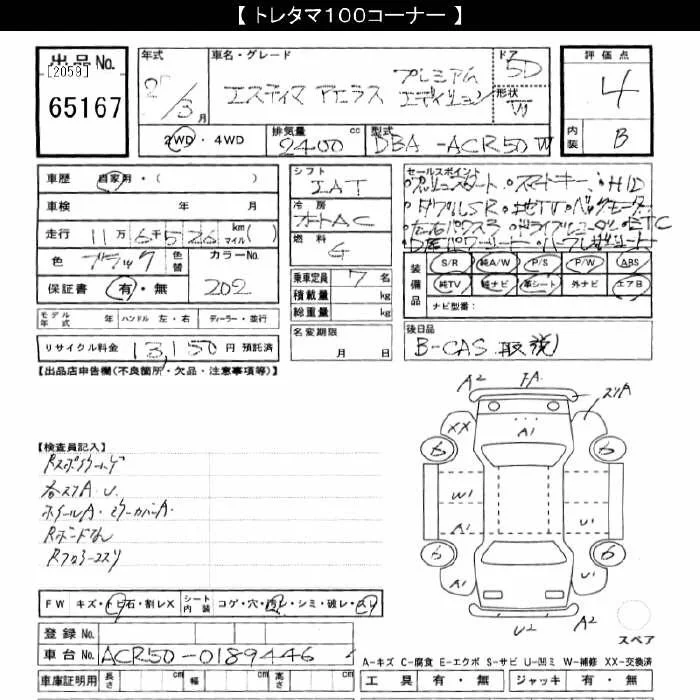 【 トレタマ100コーナー 】
出品No.
[2059]
65167
年式
/3月
車名・グレード
エスティマ アエラス プレミアム エディション
ドア
5D
形状
W
評価点
4
内装
B
2WD・4WD
排気量
2400 cc
型式
DBA-ACR50W
車歴 自家用・( )
車検 年 月
走行 11万6千526 km(マイル)
色 ブラック 色替 カラーNo.
保証書 有・無 202
シフト
IAT
冷房
オートAC
燃料
G
乗車定員 7名
積載量 kg
総重量 kg
セールスポイント
・プッシュスタート・スマートキー・HID
・ダブルSR・地TV・バックモニター
・ETC
装備品
S/R 純A/W P/S P/W ABS
純TV 純ナビ 革シート 外ナビ エアB
ナビ型番:
モデル年式 年 ハンドル 左・右 ディーラー・並行
リサイクル料金 13,150円 預託済
名変期限
月 日
後日品
B-CAS 取説
【出品店申告欄(不良箇所・欠品・注意事項等)】
【検査員記入】
各スリA.U.
ホイールA・ミラーカバーA.
Rボードなし
A2 FA スリA
XX A1
6 6
W1
A1 U1
6 6
A1 U1
U2 A2
スペア
FW キズ・トビ石・割レX シート内装 コゲ・穴・汚レ・シミ・破レ・スリ
登録No.
車台No. ACR50-0189446
車庫証明用 長さ cm 幅 cm 高さ cm
A-キズ C-腐食 E-エクボ S-サビ U-凹ミ W-補修 XX-交換済
工具 有・無 ジャッキ 有・無